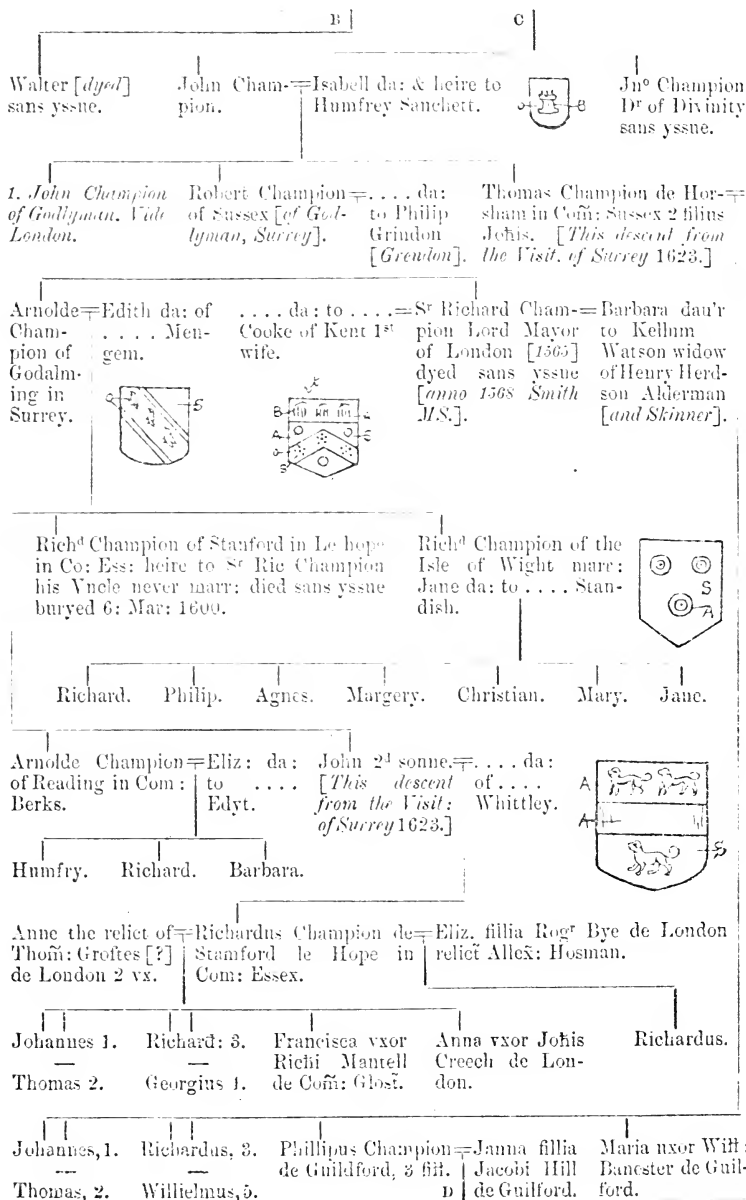 B C
Walter [dyed] sans yssue.
John Cham-pion.
Isabell da: & heire to Humfrey Sanchett.
Jnº Champion Dʳ of Divinity sans yssue.
1. John Champion of Godlyman. Vide London.
Robert Champion of Sussex [of God-lyman, Surrey].
. . . . da: to Philip Grindon [Grendon].
Thomas Champion de Hor-sham in Com̃: Sussex 2 filius Johis. [This descent from the Visit. of Surrey 1623.]
Arnolde Cham-pion of Godalm-ing in Surrey.
Edith da: of . . . . Men-gem.
. . . . da: to . . . . Cooke of Kent 1st wife.
Sʳ Richard Cham-pion Lord Mayor of London [1565] dyed sans yssue [anno 1568 Smith MS.].
Barbara dau'r to Kellum Watson widow of Henry Herd-son Alderman [and Skinner].
Richᵈ Champion of Stanford in Le hope
in Co: Ess: heire to Sʳ Ric Champion
his Vncle never marr: died sans yssue
buryed 6: Mar: 1600.
Richᵈ Champion of the
Isle of Wight marr:
Jane da: to . . . . Stan-
dish.
Richard. Philip. Agnes. Margery. Christian. Mary. Jane.
Arnolde Champion of Reading in Com: Berks.
Eliz: da: to . . . . Edyt.
John 2ᵈ sonne. [This descent from the Visit: of Surrey 1623.]
. . . . da: of . . . . Whittley.
Humfry. Richard. Barbara.
Anne the relict of Thom̃: Groftes [?] de London 2 vx.
Richardus Champion de Stamford le Hope in Com: Essex.
Eliz. fillia Rogʳ Bye de London relict̃ Allex̃: Hosman.
Johannes 1.
—
Thomas 2.
Richard̃: 3.
—
Georgius 4.
Francisca vxor
Richi Mantell
de Com̃: Glost̃.
Anna vxor Johis
Creech de Lon-
don.
Richardus.
Johannes, 1.
—
Thomas, 2.
Richardus, 3.
—
Willielmus, 5.
Phillipus Champion
de Guildford, 3 fil̃.
D
Janna fillia
Jacobi Hill
de Guilford.
Maria uxor Will̃:
Banester de Guil-
ford.